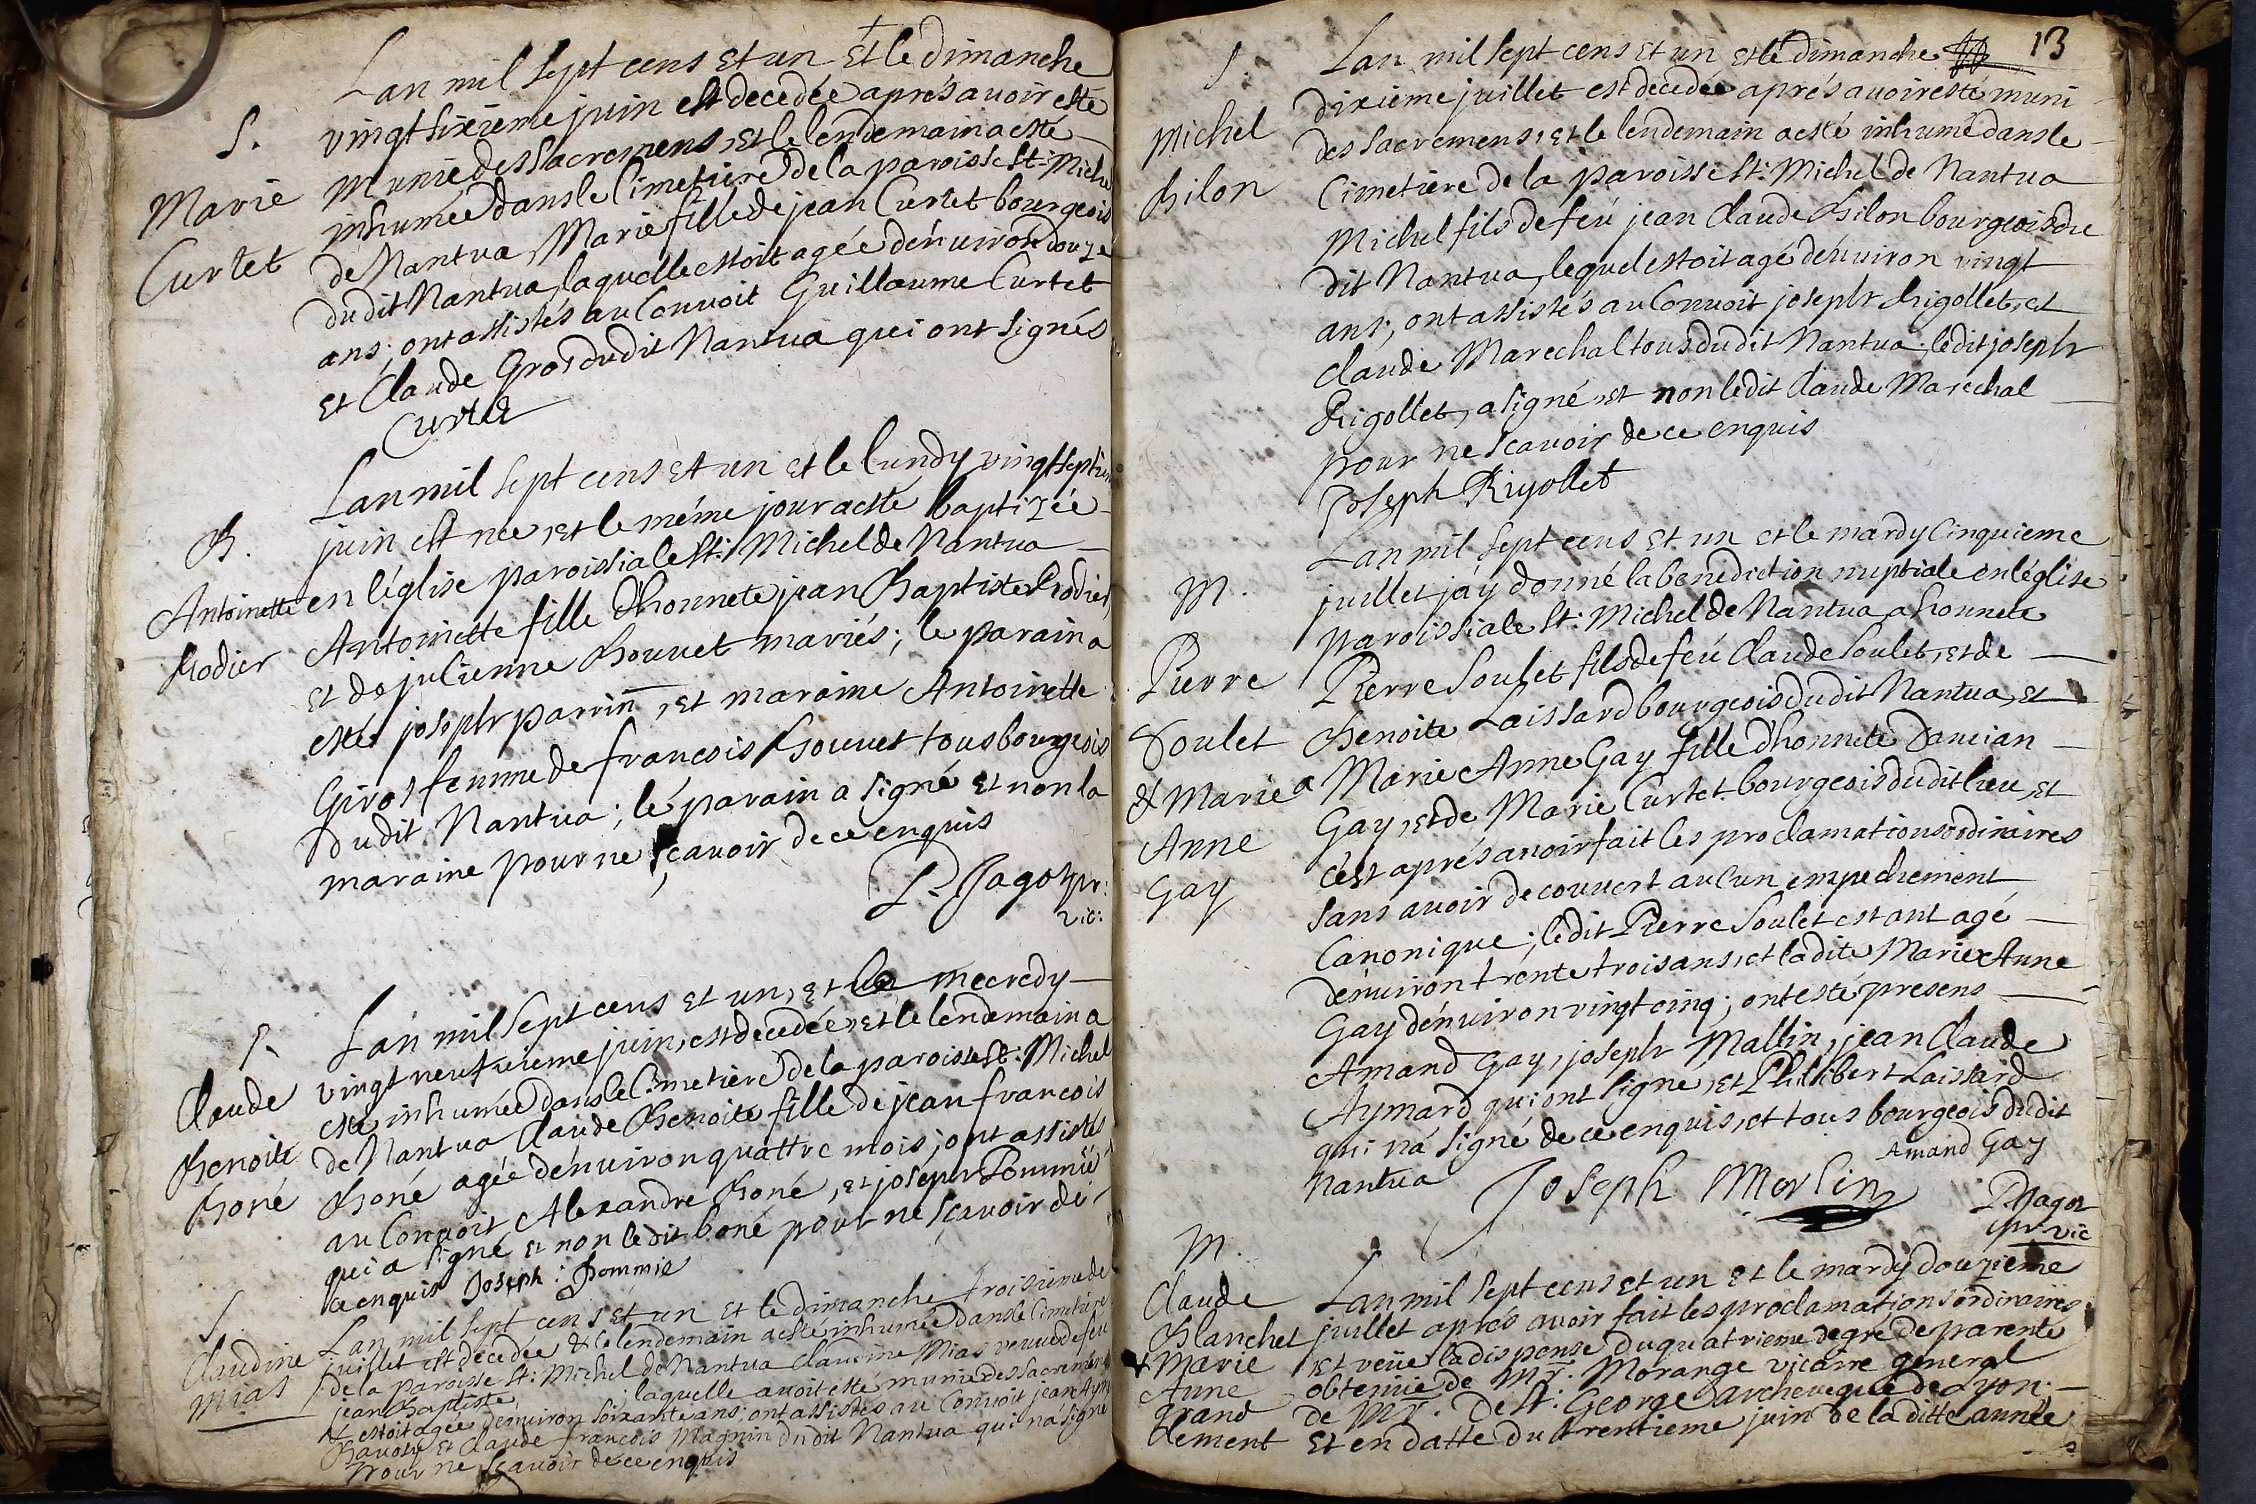 Lan mil sept cens et un et le dimanche
vingt sixieme juin est decedée aprés avoir esté
munie des sacremens, et le lendemain a esté
inhumée dans le Cimetiere de la paroisse St: Michel
de Nantua, Marie fille de jean Curtet bourgeois
du dit Nantua, laquelle estoit agée d'environ douze
ans; ont assistés au Convoit Guillaume Curtet
et Claude Gros dudit Nantua qui ont signés
Curtet
S.
Marie
Curtet
Lan mil sept cens et un et le lundy vingt septieme
juin est née, et le méme jour a esté baptizée
en l'église paroissiale St: Michel de Nantua
Antoinette fille d'honnete jean Baptiste Rodier,
et de julienne Bouvet mariés; le parain a
esté joseph parrin, et maraine Antoinette
Giros femme de francois Bouvet tous bourgeois
du dit Nantua; le parain a signé et non la
maraine pour ne sçavoir de ce enquis
P. Jagot pr:
vic:
B.
Antoinette
Rodier
Lan mil sept cens et un, et le mecredy
vingt neufvieme juin, est decedée, et le lendemain a
esté inhumée dans le Cimetiere de la paroisse St: Michel
de Nantua Claude Benoite fille de jean francois
Boné agée d'environ quattre mois; ont assistés
au Convoit Alexandre Boné, et joseph Pommié
qui a signé et non le dit boné pour ne sçavoir de
ce enquis Joseph: Pommie
S.
Claude
Benoite
Boné
Lan mil sept cens et un et le dimanche troisieme de
juillet est decedée & le lendemain a esté inhumée dans le Cimetiere
de la paroisse St: Michel de Nantua Claudine Mias veuve de feu
jean Baptiste ; laquelle avoit esté munie des sacremens
& estoit agée d'environ soixante ans; ont assistés au Convoit jean
et Claude francois Magnin du dit Nantua qui n'a signé
pour ne sçavoir de ce enquis
S.
Claudine
Mias
13
Lan mil sept cens et un et le dimanche
dixieme juillet est decedée aprés avoir esté muni
des sacremens, et le lendemain a esté inhumé dans le
Cimetiere de la paroisse St: Michel de Nantua
Michel fils de feu jean Claude Bilon bourgeois du
dit Nantua, lequel estoit agé d'environ vingt
ans, ont assistés au Convoit joseph Rigollet, et
Claude Marechal tous du dit Nantua; le dit joseph
Rigollet, a signé et non le dit Claude Marechal
pour ne scavoir de ce enquis
Joseph Rigollet
S.
Michel
Bilon
Lan mil sept cens et un et le mardy Cinquieme
juillet j'ay donné la benediction nuptiale en l'église
paroissiale St: Michel de Nantua a honnete
Pierre Soulet fils de feu Claude Soulet, et de
Benoite Laissard bourgeois du dit Nantua, et
a Marie Anne Gay fille d'honnete Damian
Gay, et de Marie Curtet bourgeois du dit lieu, et
c'est aprés avoir fait les proclamations ordinaires
sans avoir decouvert aucun empechement
Canonique; le dit Pierre Soulet estant agé
d'environ trente trois ans, et la dite Marie Anne
Gay d'environ vingt cinq; ont esté presens
Amand Gay, joseph Mallin, jean Claude
Aymard qui ont signé, et Philibert Laissard
qui n'a signé de ce enquis, et tous bourgeois du dit
Nantua
Amand Gay
Joseph Merlin
P. Jagot
pr. vic
M.
Pierre
Soulet
& Marie
Anne
Gay
Lan mil sept cens et un et le mardy douzieme
juillet aprés avoir fait les proclamations ordinaires
et veüe la dispense du quatrieme degré de parenté
obtenüe de Mr. Morange vicaire general
de Mr. de St: George archeveque de Lyon:
et en datte du trentieme juin de la ditte année
M.
Claude
Blanchet
& Marie
Anne
grand
clement